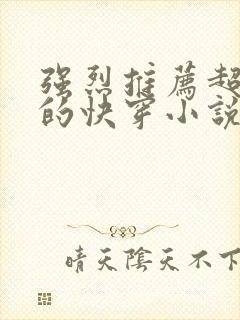 强烈推薦超
的快穿小說
晴天陰天不下